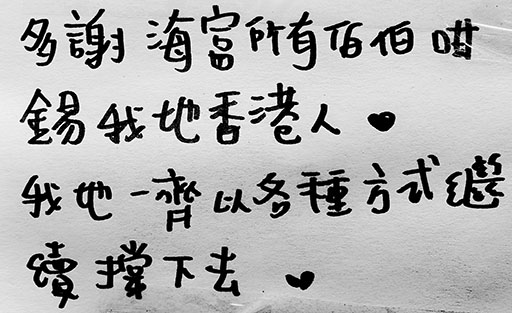 多謝海富所有伯伯咁
錫我地香港人 ♥
我地一齊以各種方式繼
續撐下去 ♥